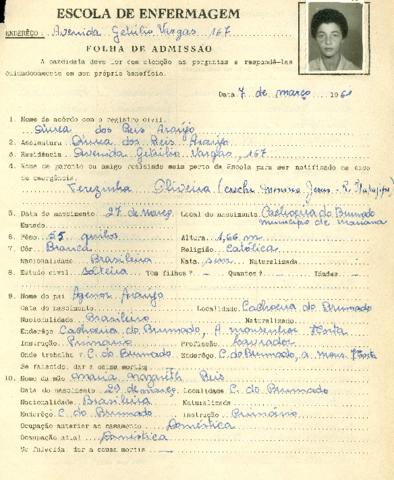 ESCOLA DE ENFERMAGEM
ENDERÊÇO: Avenida Getúlio Vargas 167
FOLHA DE ADMISSÃO
A candidata deve ler com atenção as perguntas e respondê-las
cuidadosamente em seu próprio benefício.
Data 7 de março 1961
1. Nome de acôrdo com o registro civil.
dos Reis Araújo
2. Assinatura: dos Reis Araújo
3. Residência: Avenida Getúlio Vargas, 167
4. Nome de parente ou amigo residindo mais perto da Escola para ser notificado em caso
de emergência.
Terezinha Oliveira (creche Menino Jesus - R.
5. Data do nascimento 27 de março Local do nascimento Cachoeira do Brumado
Estado município de Mariana
6. Pêso: 55 quilos Altura: 1,66 m
7. Côr: Branca Religião Católica
Nacionalidade Brasileira Nata Naturalizada
8. Estado civil: solteira Tem filhos? - Quantos? - Idades -
9. Nome do pai Agenor Araújo
Data do nascimento Localidade Cachoeira do Brumado
Nacionalidade Brasileiro Naturalizado
Enderêço Cachoeira do Brumado, A monsenhor Horta
Instrução Primário Profissão Lavrador
Onde trabalha? C. do Brumado Enderêço C. do Brumado, a mons. Horta
Se falecido, dar a causa mortis
10. Nome da mãe Maria Nazareth Reis
Data do nascimento 29 de março Localidade C. do Brumado
Nacionalidade Brasileira Naturalizada
Enderêço C. do Brumado Instrução Primário
Ocupação anterior ao casamento Doméstica
Ocupação atual Doméstica
Se falecida dar a causa mortis -